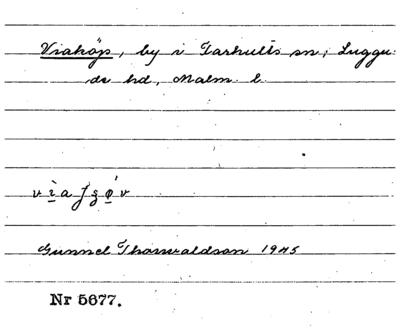 Viaköp, by i Farhults sn; Luggu-
de hd, Malm. l.
Gunnel Thorwaldson 1945
Nr 5677.